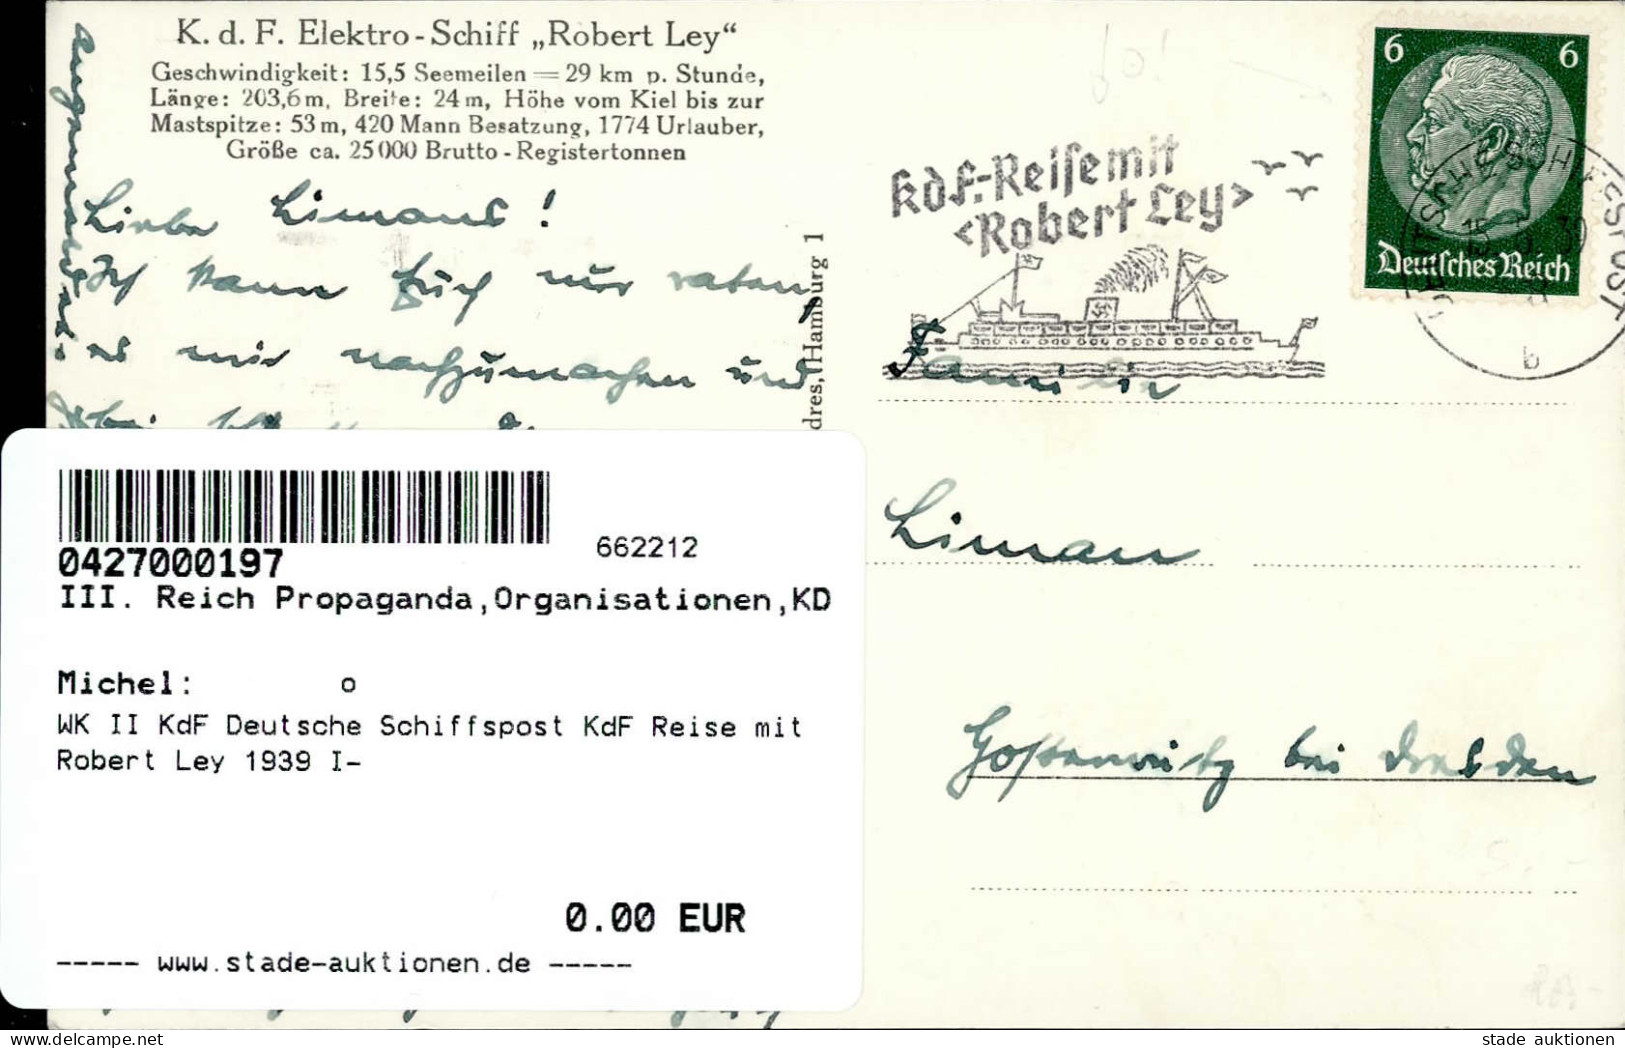 K. d. F. Elektro-Schiff „Robert Ley“
Geschwindigkeit: 15,5 Seemeilen = 29 km p. Stunde,
Länge: 203,6 m, Breite: 24 m, Höhe vom Kiel bis zur
Mastspitze: 53 m, 420 Mann Besatzung, 1774 Urlauber,
Größe ca. 25 000 Brutto-Registertonnen
Liebe Limans!
Ich kann Euch nur raten,
es mir nachzumachen und
dres, Hamburg 1
KdF.-Reise mit
<Robert Ley>
6 6
Deutsches Reich
DEUTSCHE SCHIFFSPOST
b
Familie
Liman
bei Dresden
0427000197
662212
III. Reich Propaganda,Organisationen,KD
Michel: o
WK II KdF Deutsche Schiffspost KdF Reise mit
Robert Ley 1939 I-
0.00 EUR
----- www.stade-auktionen.de -----
stade auktionen